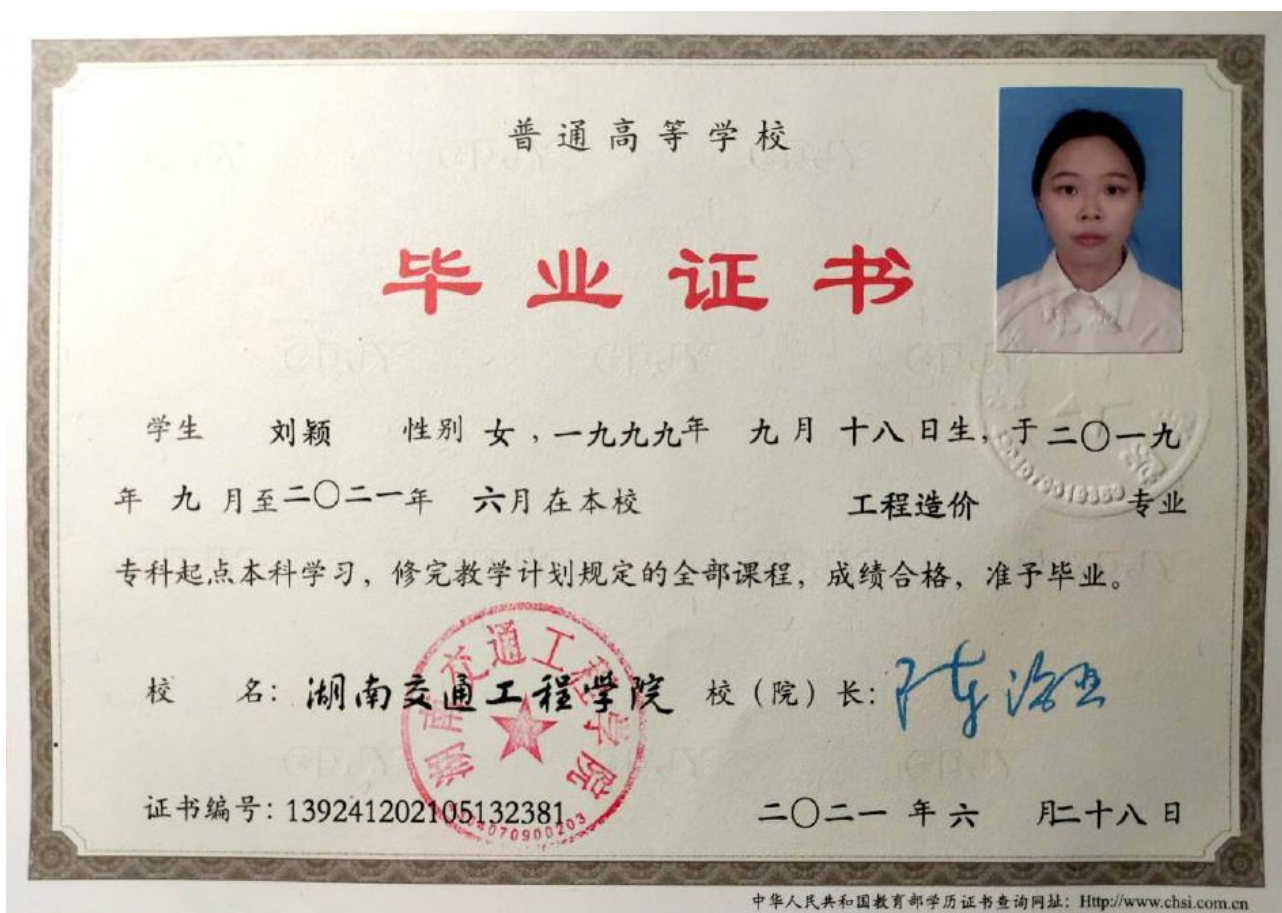 普通高等学校
毕业证书
学生 刘颖 性别 女，一九九九年 九月 十八日生，于二〇一九
年 九 月至二〇二一年 六月在本校 工程造价 专业
专科起点本科学习，修完教学计划规定的全部课程，成绩合格，准予毕业。
校 名：湖南交通工程學院 校（院）长：
湖南交通工程学院
证书编号：139241202105132381 二〇二一 年六 月二十八日
中华人民共和国教育部学历证书查询网址：Http://www.chsi.com.cn